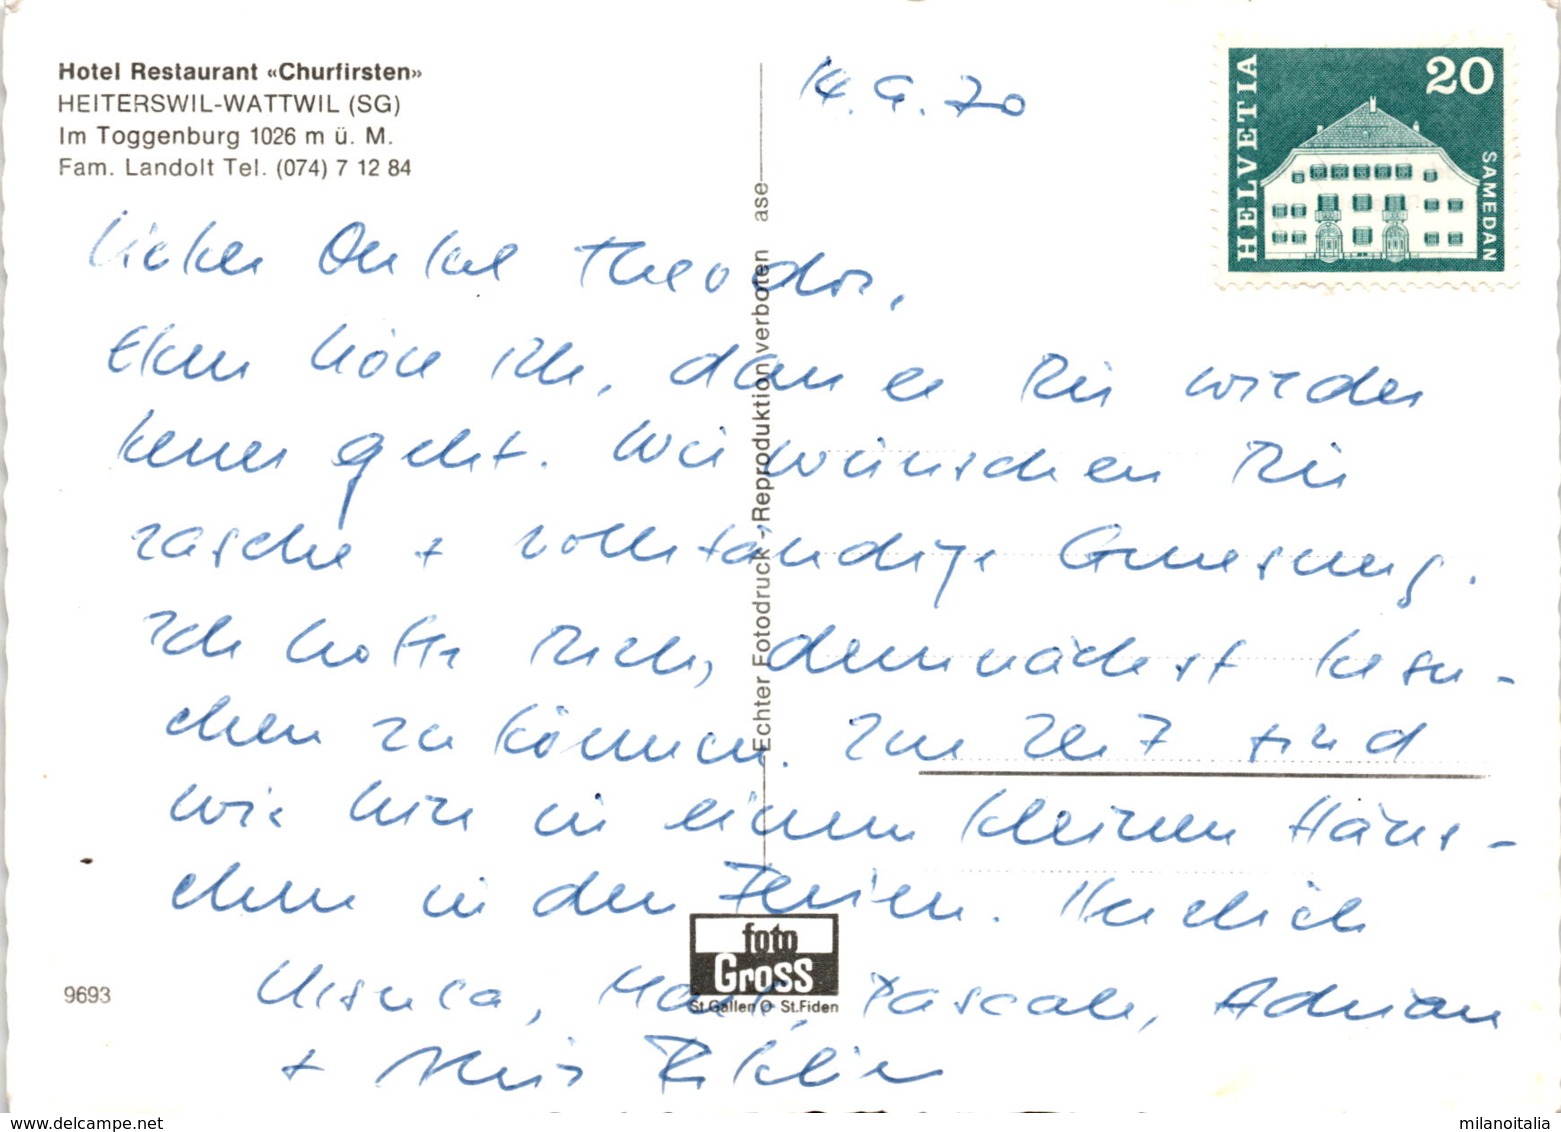 Hotel Restaurant «Churfirsten»
HEITERSWIL-WATTWIL (SG)
Im Toggenburg 1026 m ü. M.
Fam. Landolt Tel. (074) 7 12 84
14. 9. 70
HELVETIA
20
SAMEDAN
Lieber Onkel Theodor,
Eben höre ich, dass es Dir wieder
besser geht. Wir wünschen Dir
rasche + vollständige Genesung.
Ich hoffe Dich, demnächst besu-
chen zu können. Zur Zeit sind
wir hier in einem kleinen Häus-
chen in den Ferien. Herzlich
Ursula, Mark, Pascale, Adrian
+
Echter Fotodruck - Reproduktion verboten ase
foto
Gross
St.Gallen O St.Fiden
9693
www.delcampe.net
milanoitalia